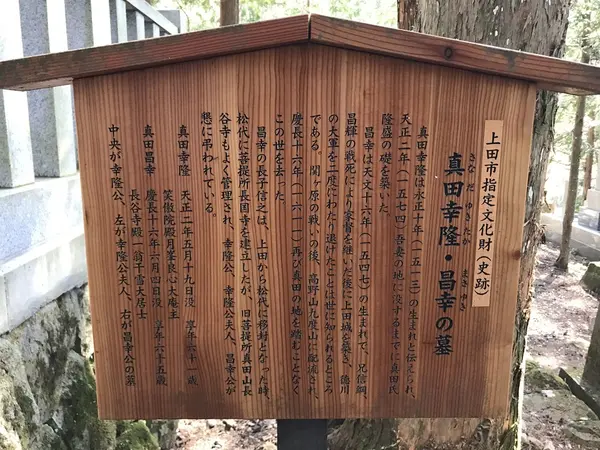 上田市指定文化財(史跡)
さなだ ゆきたか まさゆき
真田幸隆・昌幸の墓
真田幸隆は永正十年(一五一三)の生まれと伝えられ、
天正二年(一五七四)吾妻の地に没するまでに真田氏
隆盛の礎を築いた。
昌幸は天文十六年(一五四七)の生まれで、兄信綱、
昌輝の戦死により家督を継いだ後に上田城を築き、徳川
の大軍を二度にわたり退けたことは世に知られるところ
である。関ヶ原の戦いの後、高野山九度山に配流され、
慶長十六年(一六一一)再び真田の地を踏むことなく
この世を去った。
昌幸の長子信之は、上田から松代に移封となった時、
松代に菩提所長国寺を建立したが、旧菩提所真田山長
谷寺もよく管理され、幸隆公、幸隆公夫人、昌幸公が
懇に弔われている。
真田幸隆 天正二年五月十九日没 享年六十一歳
笑傲院殿月峯良心大庵主
真田昌幸 慶長十六年六月四日没 享年六十五歳
長谷寺殿一翁千雪大居士
中央が幸隆公、左が幸隆公夫人、右が昌幸公の墓